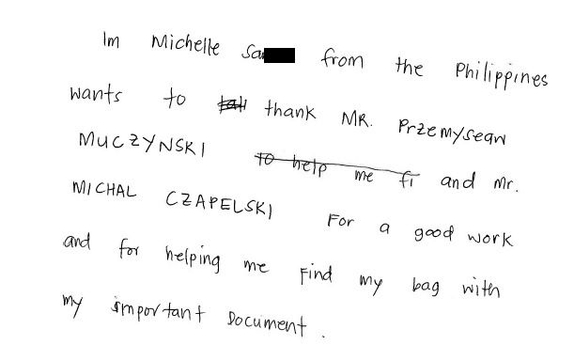 Im Michelle Sa from the Philippines
wants to thank MR. Przemyseaw
MUCZYNSKI to help me fi and Mr.
MICHAL CZAPELSKI For a good work
and for helping me Find my bag with
my important Document.